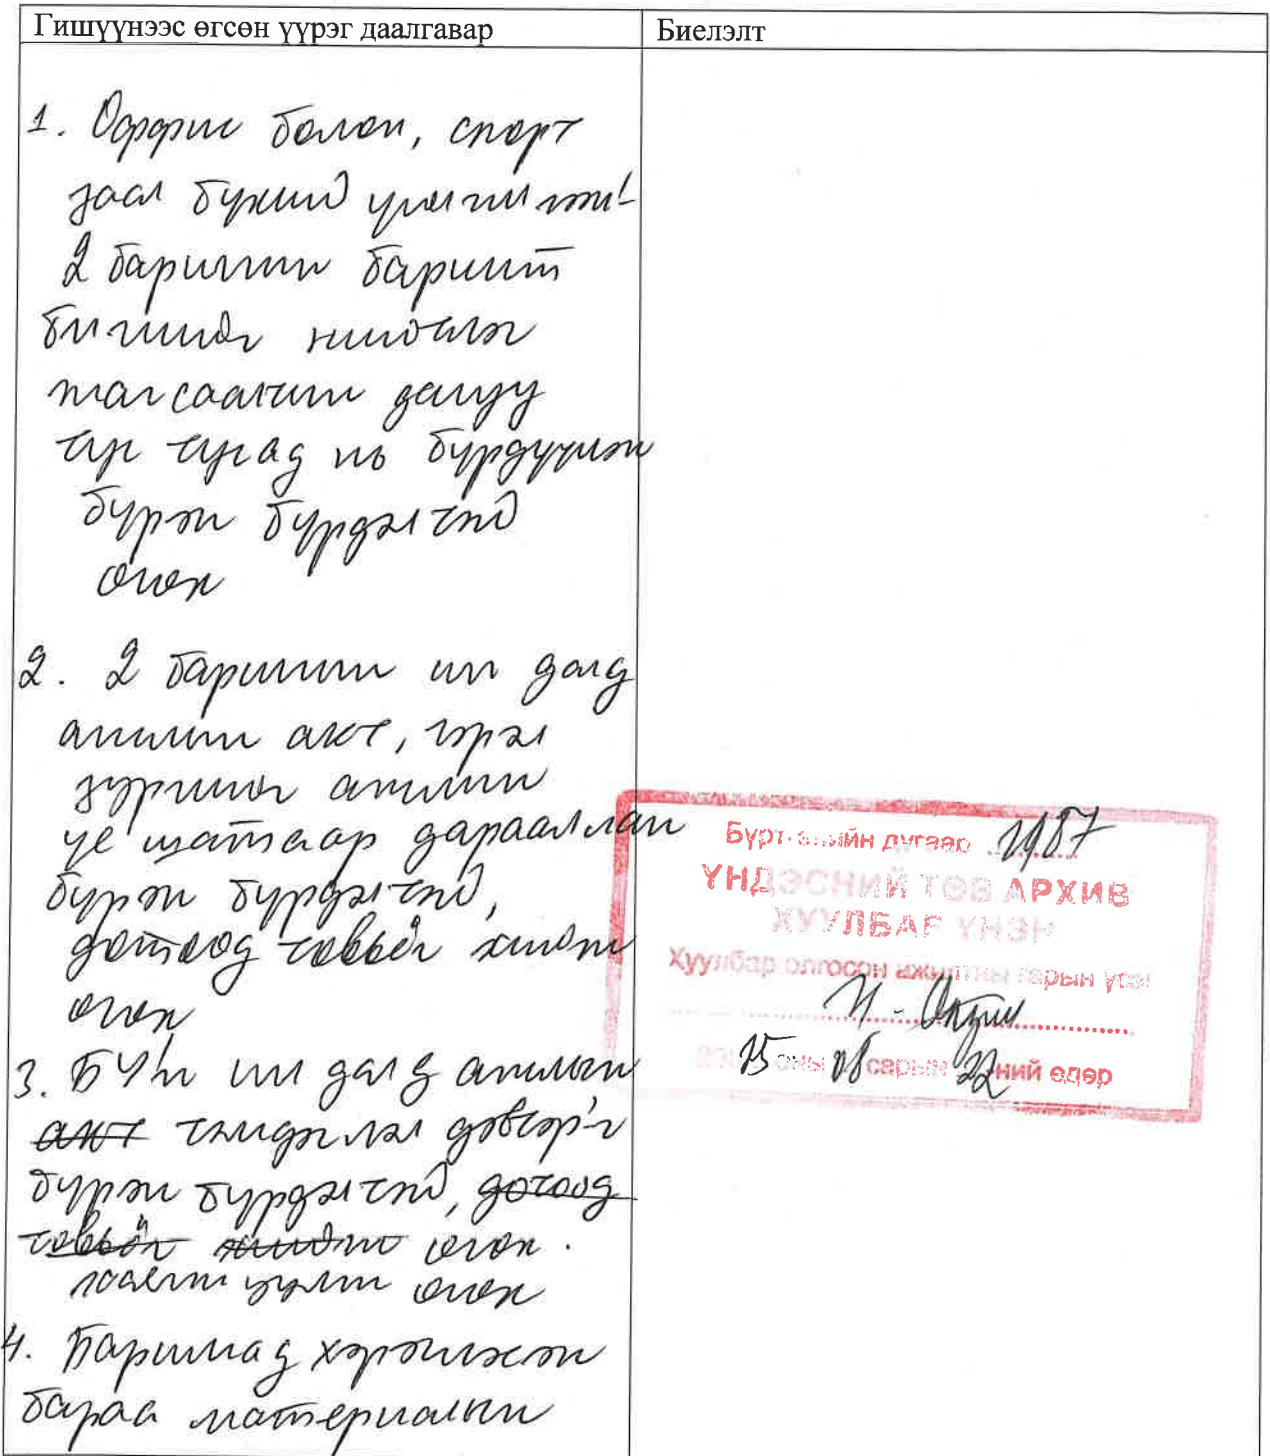 Гишүүнээс өгсөн үүрэг даалгавар
Биелэлт
1. Оффис болон, спорт
заал бүхий үйлчилгээ
2 барилгын баримт
бичгийг нийтлэг
жагсаалтын дагуу
бүрдүүлж
бүрэн бүрдэлтэй
өгөх
2. 2 барилгын ил далд
ажлын акт, гэрэл
зургийг ажлын
үе шатаар дараалан
бүрэн бүрдэлтэй,
дотоод товъёг хийж
өгөх
3. БҮ'н ил далд ажлын
акт тэмдэглэл дэвтэр'г
бүрэн бүрдэлтэй, дотоод
товъёг хийж өгөх.
өгөх
4. Барилгад хэрэглэсэн
бараа материалын
Бүртгэлийн дугаар 1987
ҮНДЭСНИЙ ТӨВ АРХИВ
ХУУЛБАР ҮНЭН
Хуулбар олгосон ажилтны гарын үсэг
25 оны 08 сарын 22-ний өдөр